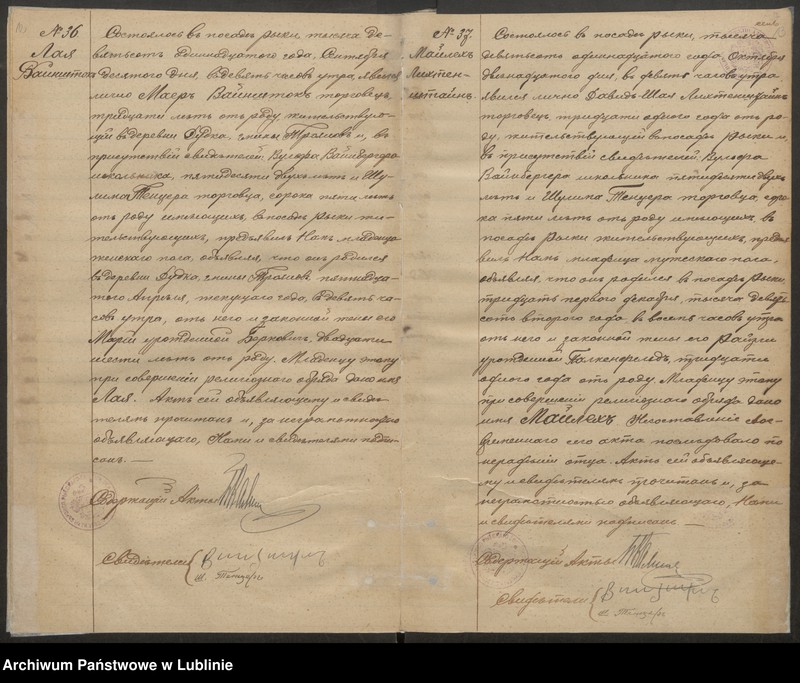 № 36
Лая
Вайншток
Состоялось въ посадѣ Рыки, тысяча де-
вятьсотъ одиннадцатаго года, Сентября
десятаго дня, въ девять часовъ утра, Явился
лично Маеръ Вайнштокъ торговецъ,
тридцати лѣтъ отъ роду, жительствую-
щій въ деревни Дудка, гмины Трояновъ и, въ
присутствіи свидѣтелей: Вульфа Вайнбергера
школьника, пятидесяти двухъ лѣтъ и Шу-
лима Тенцера торговца, сорока пяти лѣтъ
отъ роду имѣющихъ, въ посадѣ Рыки жи-
тельствующихъ, предъявилъ Намъ младенца
женскаго пола, объявляя, что онъ родился
въ деревни Дудка, гмины Трояновъ пятнадца-
таго Апрѣля, текущаго года, въ девять ча-
совъ утра, отъ него и законной жены его
Маріи урожденной Беркович, двадцати
шести лѣтъ отъ роду. Младенцу этому
при совершеніи религіознаго обряда дано имя
Лая. Актъ сей объявляющему и свидѣ-
телямъ прочитанъ и, за неграмотностію
объявляющаго, Нами и свидѣтелями подпи-
санъ. —
Содержащій Акты
Свидѣтели
Ш. Тенцеръ
№ 37
Майлехъ
Лихтен-
штайнъ
Состоялось въ посадѣ Рыки, тысяча
девятьсотъ одиннадцатаго года Октября
двѣнадцатаго дня, въ девять часовъ утра
явился лично Давидъ-Шая Лихтенштайнъ
торговецъ тридцати одного года отъ ро-
ду, жительствующій въ посадѣ Рыки и,
въ присутствіи свидѣтелей: Вульфа
Вайнбергера школьника пятидесяти двухъ
лѣтъ и Шулима Тенцера торговца, соро-
ка пяти лѣтъ отъ роду имѣющихъ, въ
посадѣ Рыки жительствующихъ, предъя-
вилъ Намъ младенца мужескаго пола,
объявляя, что онъ родился въ посадѣ Рыки,
тридцать перваго декабря, тысяча девять-
сотъ второго года въ восемь часовъ утра
отъ него и законной жены его Райзи
урожденной тридцати
одного года отъ роду. Младенцу этому
при совершеніи религіознаго обряда дано
имя Майлехъ Несоставленіе свое-
временнаго сего акта послѣдовало по
нерадѣнію отца. Актъ сей объявляюще-
му и свидѣтелямъ прочитанъ и, за
неграмотностью объявляющаго, Нами
и свидѣтелями подписанъ —
Содержащій Акты
Свидѣтели
Ш. Тенцеръ
Archiwum Państwowe w Lublinie